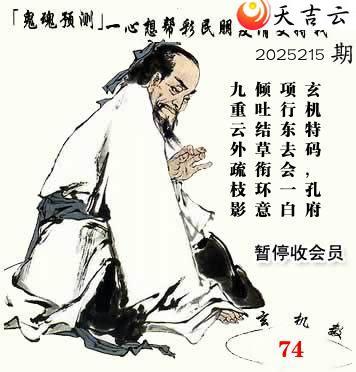 天吉云
「鬼魂预测」一心想帮彩民朋友情
2025215 期
玄机特码,孔府
项行东去会一白
倾吐结草衔环意
九重云外疏枝影
暂停收会员
玄机数
74